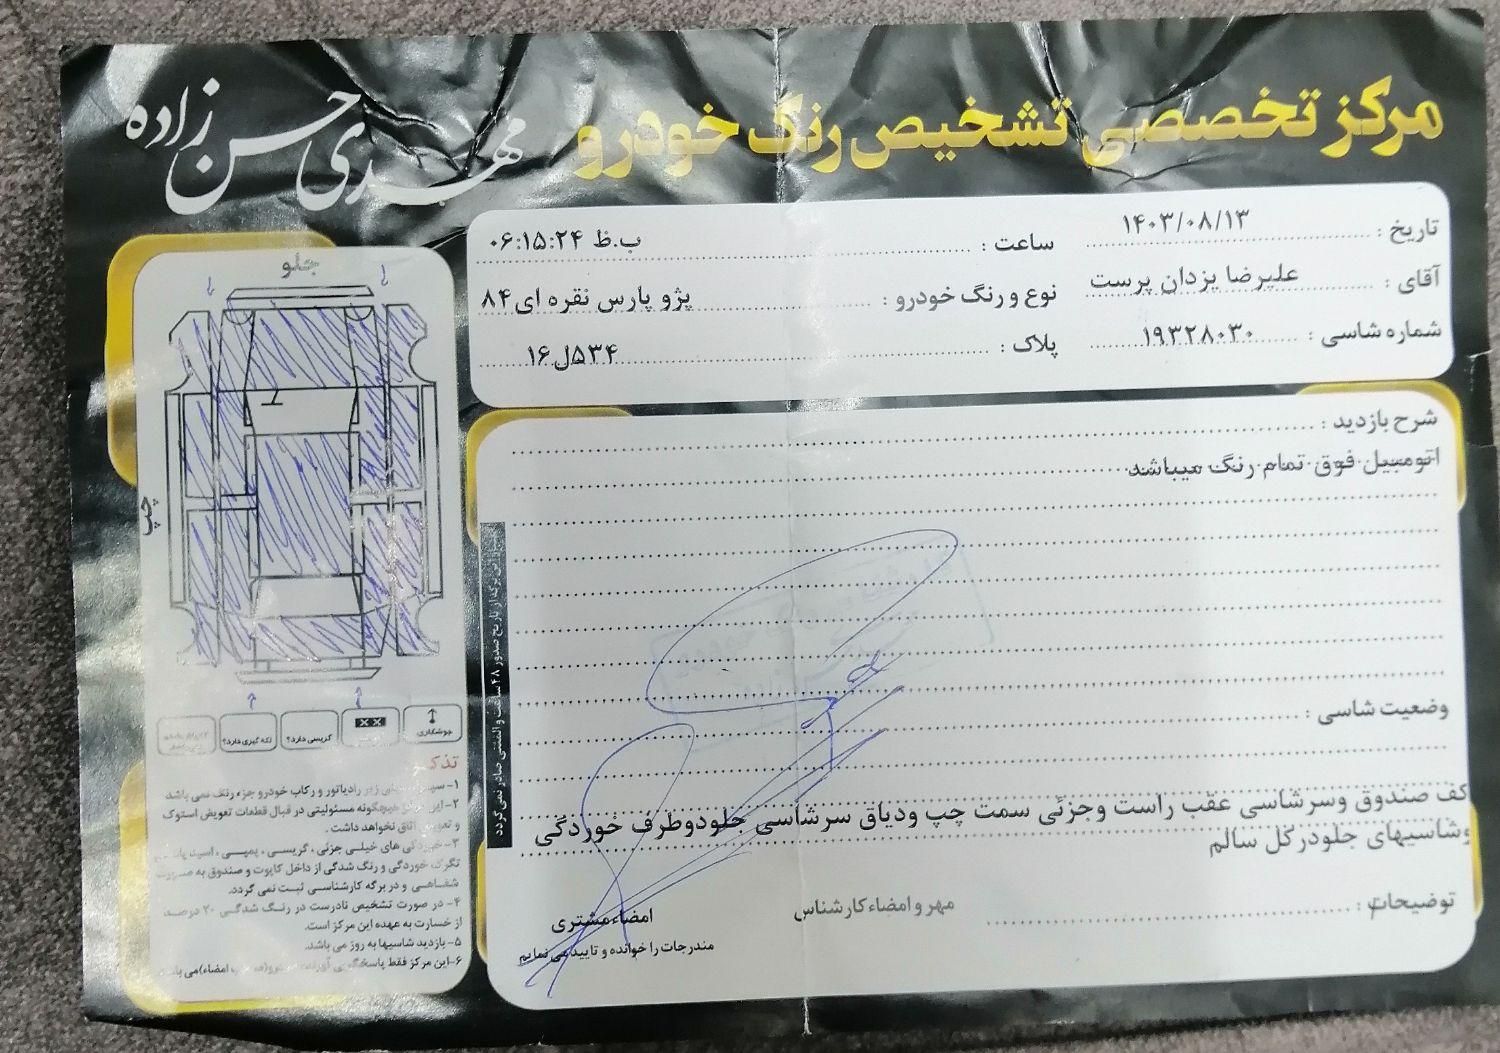 مرکز تخصصی تشخیص رنگ خودرو
مهدی حسن زاده
تاریخ : ۱۴۰۳/۰۸/۱۳
ساعت : ۰۶:۱۵:۲۴ ب.ظ
آقای : علیرضا یزدان پرست
نوع و رنگ خودرو : پژو پارس نقره ای ۸۴
شماره شاسی : ۱۹۳۲۸۰۳۰
پلاک : ۵۳۴ل۱۶
شرح بازدید :
اتومبیل فوق تمام رنگ میباشد
وضعیت شاسی :
کف صندوق وسرشاسی عقب راست وجزئی سمت چپ ودیاق سرشاسی جلودوطرف خوردگی
وشاسیهای جلودرکل سالم
توضیحات :
مهر و امضاء کارشناس
امضاء مشتری
مندرجات را خوانده و تایید می نمایم
جلو
چپ
جوشکاری
XX
گریسی دارد؟
لکه گیری دارد؟
از تاریخ صدور ۴۸ ساعت و المثنی صادر نمی گردد
تذکر
۱- زیر رادیاتور و رکاب خودرو جزء رنگ نمی باشد
۲- این هیچگونه مسئولیتی در قبال قطعات تعویض استوک
و تعویض اتاق نخواهد داشت .
۳- های خیلی جزئی ، گریسی ، پمپی ، اسید
تگرگ خوردگی و رنگ شدگی از داخل کاپوت و صندوق به صورت
شفاهی و در برگه کارشناسی ثبت نمی گردد.
۴- در صورت تشخیص نادرست در رنگ شدگی ۲۰ درصد
از خسارت به عهده این مرکز است.
۵- بازدید شاسیها به روز می باشد.
۶- این مرکز فقط پاسخگوی امضاء) می باشد